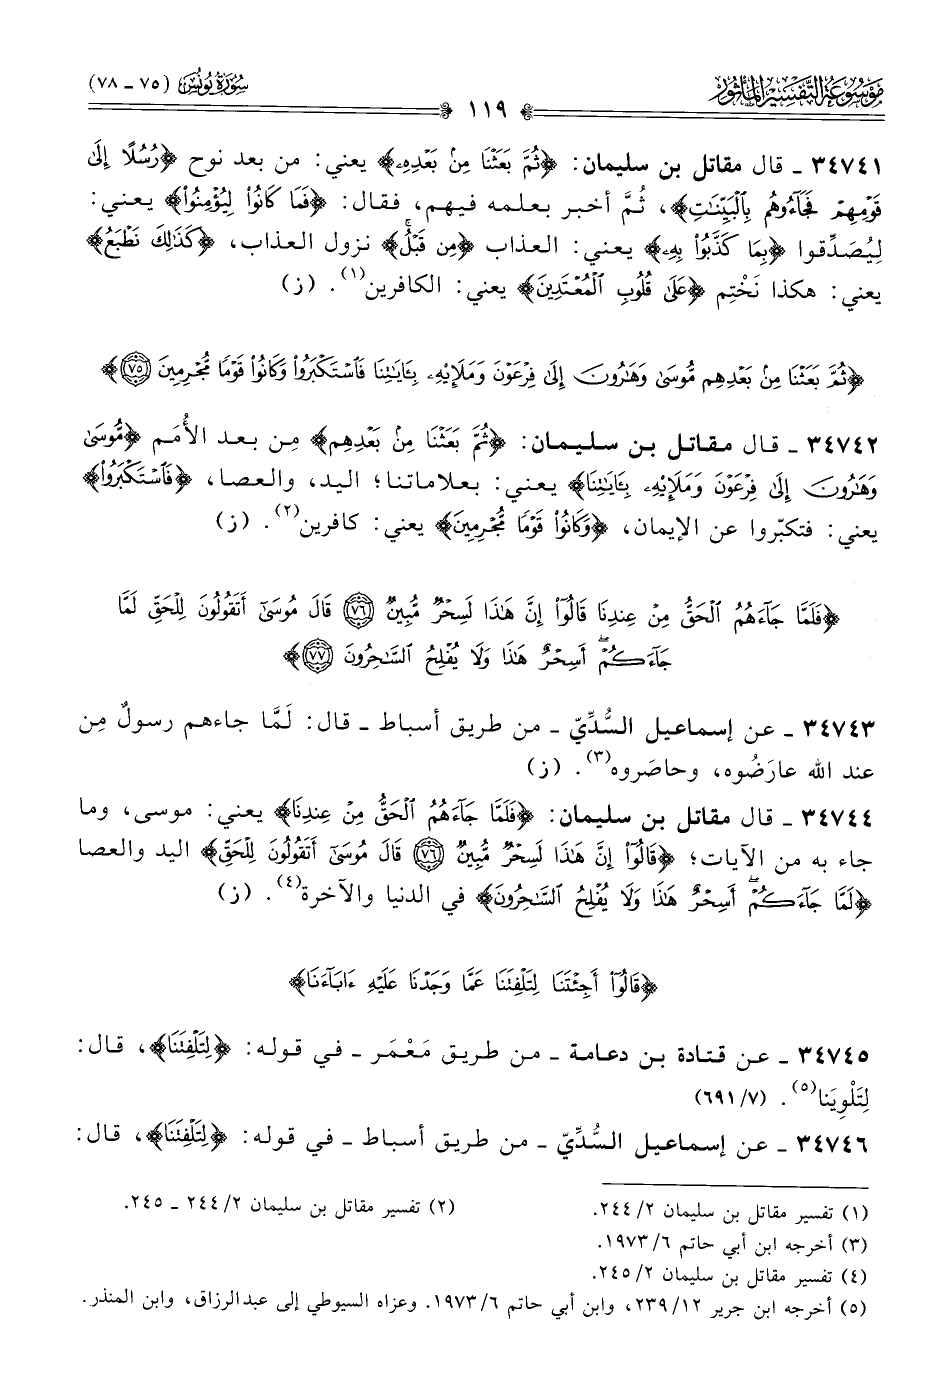 مَوْسُوعَةُ التَّفْسِيرِ المَأْثُور
سُورَةُ يُونُسَ (٧٥ - ٧٨)
١١٩
٣٤٧٤١ - قال مقاتل بن سليمان: ﴿ثُمَّ بَعَثْنَا مِنْ بَعْدِهِۦ﴾ يعني: من بعد نوح ﴿رُسُلًا إِلَىٰ
قَوْمِهِمْ فَجَآءُوهُم بِٱلْبَيِّنَـٰتِ﴾، ثُمَّ أخبر بعلمه فيهم، فقال: ﴿فَمَا كَانُوا۟ لِيُؤْمِنُوا۟﴾ يعني:
لِيُصَدِّقوا ﴿بِمَا كَذَّبُوا۟ بِهِۦ﴾ يعني: العذاب ﴿مِن قَبْلُ﴾ نزول العذاب، ﴿كَذَٰلِكَ نَطْبَعُ﴾
يعني: هكذا نَخْتِم ﴿عَلَىٰ قُلُوبِ ٱلْمُعْتَدِينَ﴾ يعني: الكافرين(١). (ز)
﴿ثُمَّ بَعَثْنَا مِنۢ بَعْدِهِم مُّوسَىٰ وَهَـٰرُونَ إِلَىٰ فِرْعَوْنَ وَمَلَإِي۟هِۦ بِـَٔايَـٰتِنَا فَٱسْتَكْبَرُوا۟ وَكَانُوا۟ قَوْمًا مُّجْرِمِينَ ٧٥﴾
٣٤٧٤٢ - قال مقاتل بن سليمان: ﴿ثُمَّ بَعَثْنَا مِنۢ بَعْدِهِم﴾ مِن بعد الأُمَم ﴿مُّوسَىٰ
وَهَـٰرُونَ إِلَىٰ فِرْعَوْنَ وَمَلَإِي۟هِۦ بِـَٔايَـٰتِنَا﴾ يعني: بعلاماتنا؛ اليد، والعصا، ﴿فَٱسْتَكْبَرُوا۟﴾
يعني: فتكبّروا عن الإيمان، ﴿وَكَانُوا۟ قَوْمًا مُّجْرِمِينَ﴾ يعني: كافرين(٢). (ز)
﴿فَلَمَّا جَآءَهُمُ ٱلْحَقُّ مِنْ عِندِنَا قَالُوٓا۟ إِنَّ هَـٰذَا لَسِحْرٌ مُّبِينٌ ٧٦ قَالَ مُوسَىٰٓ أَتَقُولُونَ لِلْحَقِّ لَمَّا
جَآءَكُمْ ۖ أَسِحْرٌ هَـٰذَا وَلَا يُفْلِحُ ٱلسَّـٰحِرُونَ ٧٧﴾
٣٤٧٤٣ - عن إسماعيل السُّدِّيّ - من طريق أسباط - قال: لَمَّا جاءهم رسولٌ مِن
عند الله عارَضُوه، وحاصَروه(٣). (ز)
٣٤٧٤٤ - قال مقاتل بن سليمان: ﴿فَلَمَّا جَآءَهُمُ ٱلْحَقُّ مِنْ عِندِنَا﴾ يعني: موسى، وما
جاء به من الآيات؛ ﴿قَالُوٓا۟ إِنَّ هَـٰذَا لَسِحْرٌ مُّبِينٌ ٧٦ قَالَ مُوسَىٰٓ أَتَقُولُونَ لِلْحَقِّ﴾ اليد والعصا
﴿لَمَّا جَآءَكُمْ ۖ أَسِحْرٌ هَـٰذَا وَلَا يُفْلِحُ ٱلسَّـٰحِرُونَ﴾ في الدنيا والآخرة(٤). (ز)
﴿قَالُوٓا۟ أَجِئْتَنَا لِتَلْفِتَنَا عَمَّا وَجَدْنَا عَلَيْهِ ءَابَآءَنَا﴾
٣٤٧٤٥ - عن قتادة بن دعامة - من طريق مَعْمَر - في قوله: ﴿لِتَلْفِتَنَا﴾، قال:
لِتَلْوِيَنا(٥). (٦٩١/٧)
٣٤٧٤٦ - عن إسماعيل السُّدِّيّ - من طريق أسباط - في قوله: ﴿لِتَلْفِتَنَا﴾، قال:
(١) تفسير مقاتل بن سليمان ٢/ ٢٤٤. (٢) تفسير مقاتل بن سليمان ٢/ ٢٤٤ - ٢٤٥.
(٣) أخرجه ابن أبي حاتم ٦/ ١٩٧٣.
(٤) تفسير مقاتل بن سليمان ٢/ ٢٤٥.
(٥) أخرجه ابن جرير ١٢/ ٢٣٩، وابن أبي حاتم ٦/ ١٩٧٣. وعزاه السيوطي إلى عبدالرزاق، وابن المنذر.